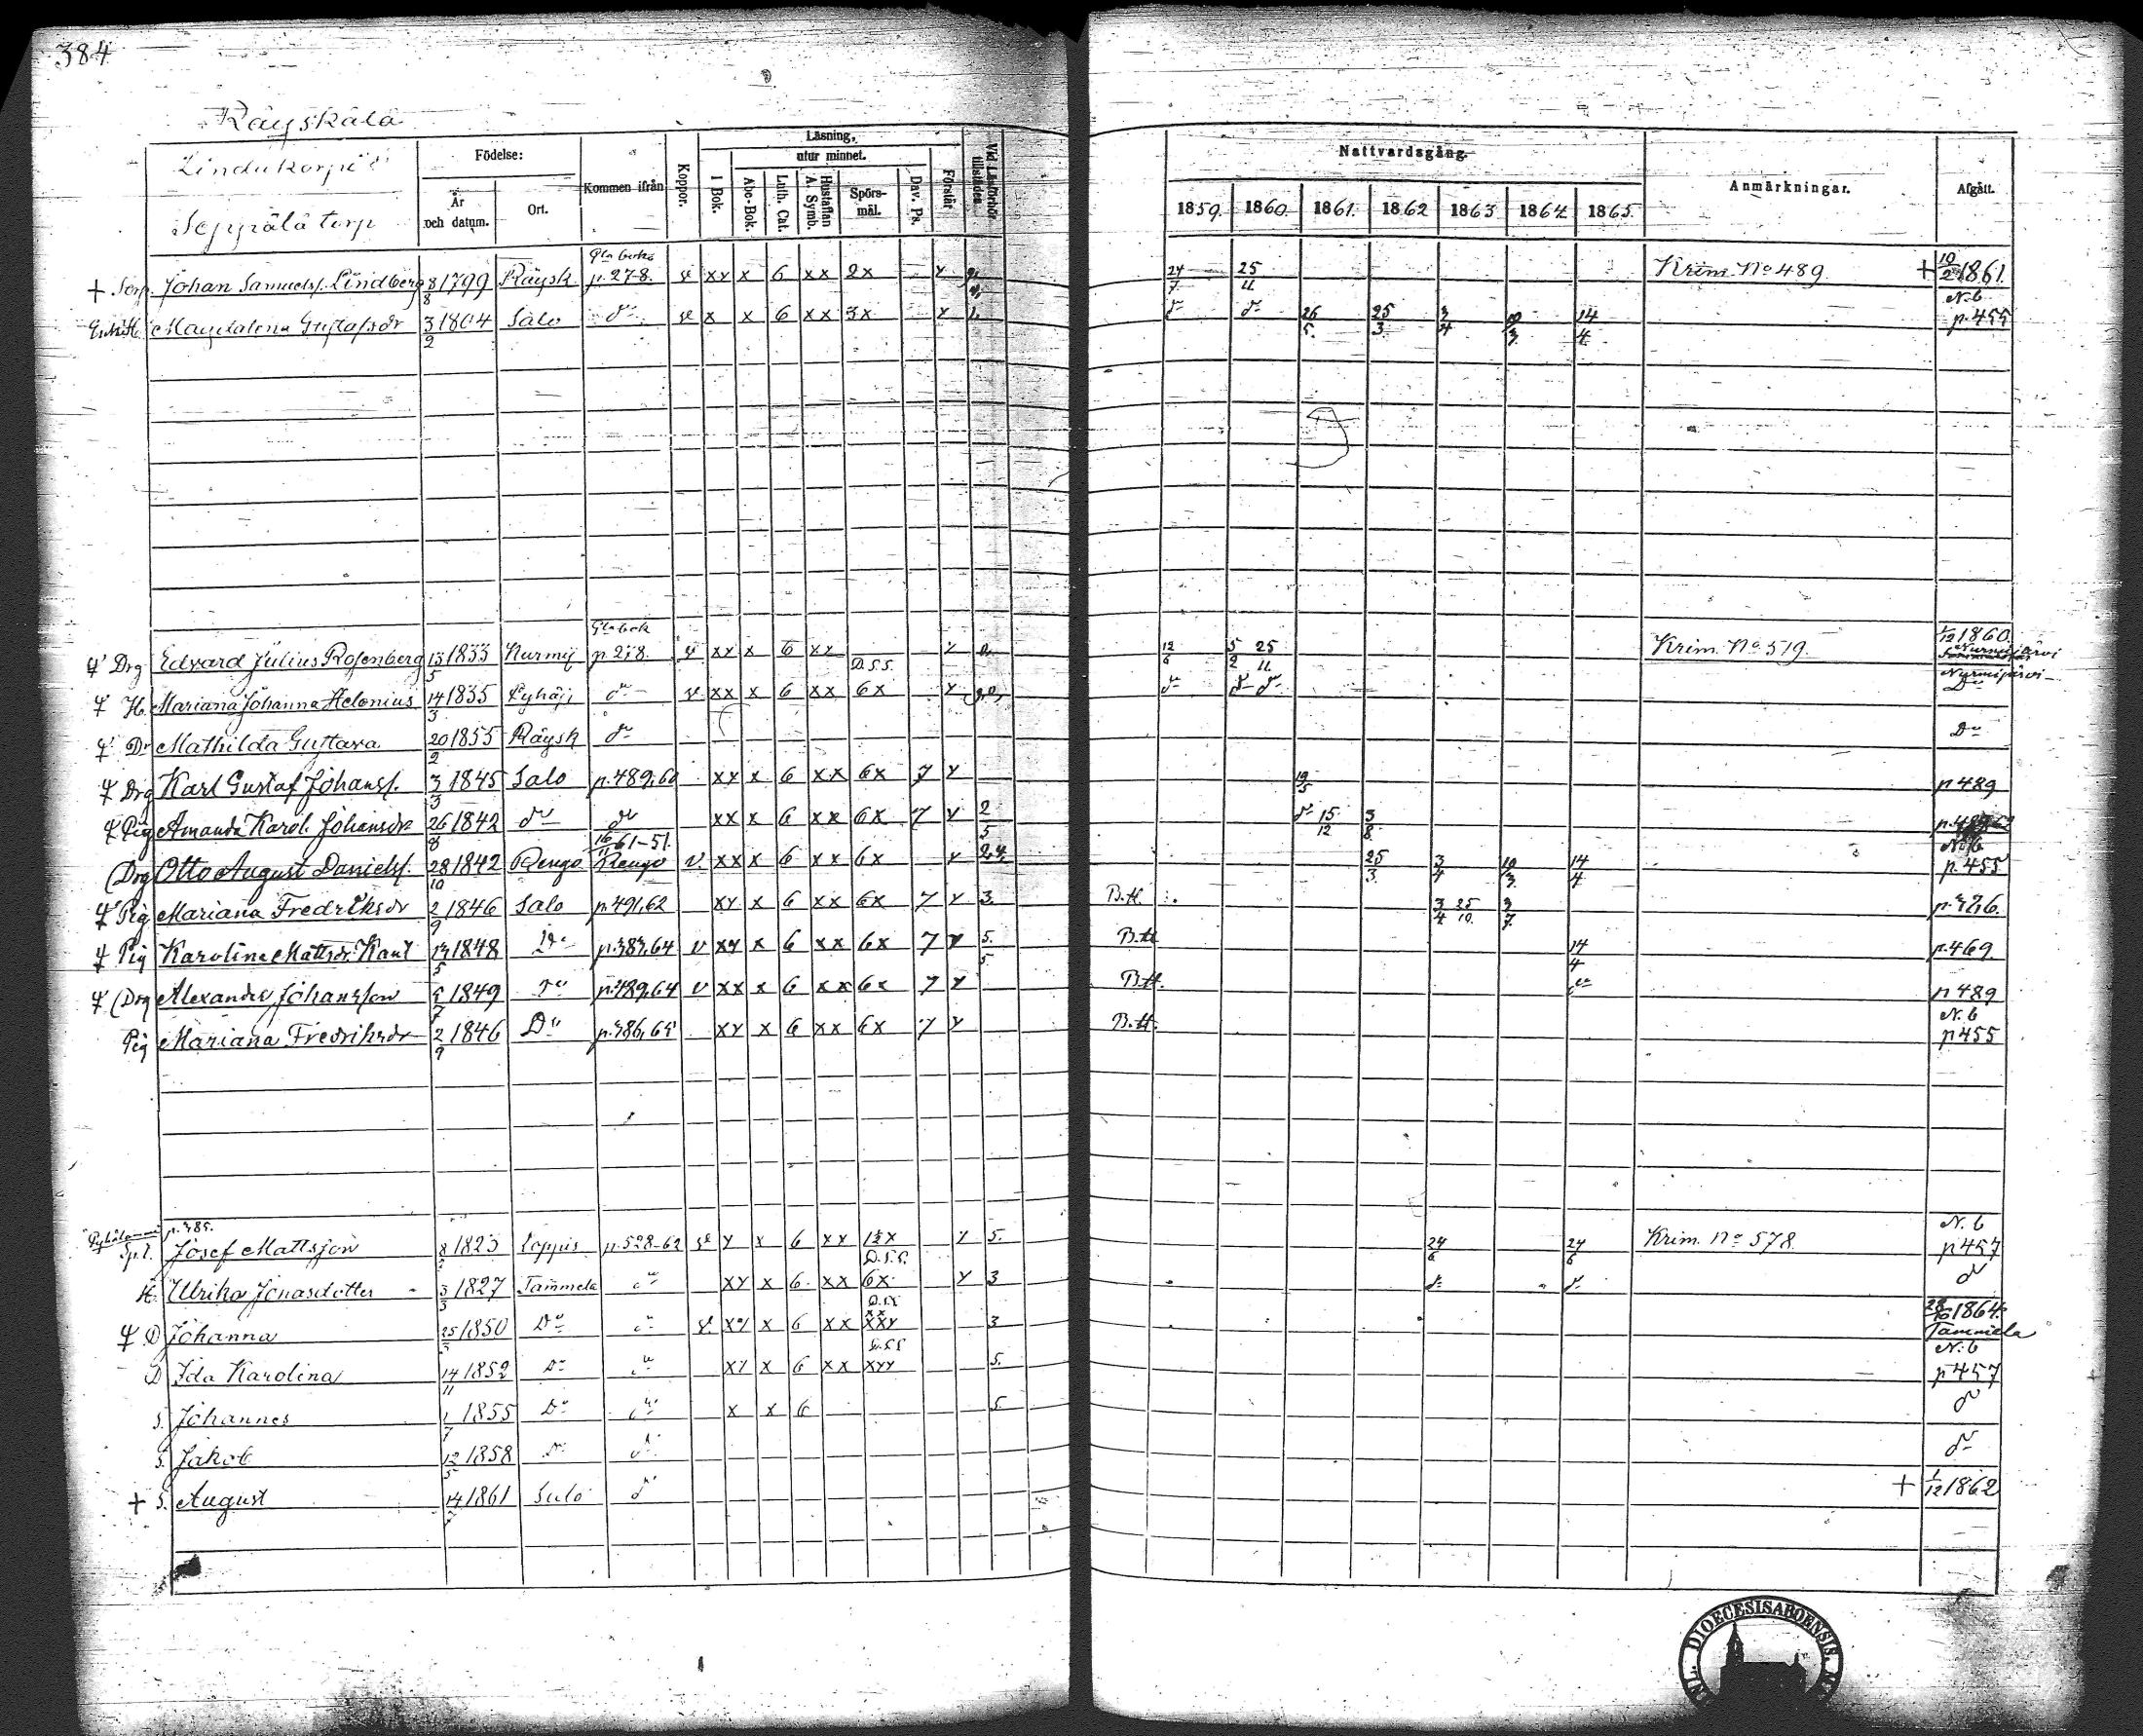 384
Räyskälä
Lindukorpi
Seppälä torp
Födelse:
År och datum.
Ort.
Kommen ifrån
Koppor.
Läsning,
utur minnet.
I Bok.
Abc-Bok.
Luth. Cat.
Hustaflan A. Symb.
Spörs-mål.
Dav. Ps.
Förstår
Vid Läsförhör tillstädes
Nattvardsgång.
1859. 1860. 1861. 1862 1863 1864 1865.
Anmärkningar.
Afgått.
+ Torp. Johan Samuelss. Lindberg 8/8 1799 Räysk Gla boken p. 278. v xx x 6 xx 2x y 24/7 25/11 Krim. No 489 + 10/2 1861.
Enk. H. Magdalena Gustafsdr 3/2 1804 Salo do v x x 6 xx 3x y do do 26/5. 25/3. 3/4 14/4 N. 6 p. 455
Drg Edvard Julius Rosenberg 13/5 1833 Nurmij Gla bok p. 278. v xx x 6 xx y 12/6 5/2 25/11 Krim. No 519. 1/12 1860. Nurmijärvi
H. Mariana Johanna Helenius 14/3 1835 Pyhäj. do v xx x 6 xx D.S.S. 6x y do do do Nurmijärvi Do
Dr Mathilda Gustava 20/2 1855 Räysk do Do
Drg Karl Gustaf Johanss. 3/3 1845 Salo p. 489,60 xx x 6 xx 6x 7 y 19/5 p 489
Pig Amanda Karol. Johansdr 26/8 1842 do do xx x 6 xx 6x 7 y 2/5 do 15/12 3/8
(Drg Otto August Daniels. 28/10 1842 Rengo 16/11 61-51. Rengo v xx x 6 xx 6x y 2,4 25/3. 3/4 10/3 14/4 N. 6 p. 455
Pig Mariana Fredriksdr 2/9 1846 Salo p. 491,62 xx x 6 xx 6x 7 y 3. B.H. 3/4 25/10. 3/7. p. 426.
Pig Karolina Mattsdr. Kant 1848 Do p. 383,64 v xx x 6 xx 6x 7 y 5. 5 B.H 14/4 p. 469.
(Drg Alexander Johansson 1849 Do p. 489,64 v xx x 6 xx 6x 7 y B.H. do p 489
Pig Mariana Fredriksdr 2/9 1846 Do p. 386,65 xx x 6 xx 6x 7 y B.H. N. 6 p 455
p. 385.
Josef Mattsson 1823 Loppis p. 528-62 v y x 6 xx D.S.S. y 5. 24/6 24/6 Krim. No 578. N. 6 p 457
H. Ulrika Jonasdotter 3/3 1827 Tammela do xx x 6 xx 6x y 3 do do do
D Johanna 25/3 1850 Do do v. xx x 6 xx xxy 3 1864. Tammela
D Ida Karolina 14/11 1852 Do do xx x 6 xx xyy 5. N. 6 p 457
S. Johannes 1/7 1855 Do do x x 6 5 do
S. Jakob 12/5 1858 Do do do
+ S. August 14 1861 Salo do + 1/12 1862
DIOECESIS ABOENSIS.